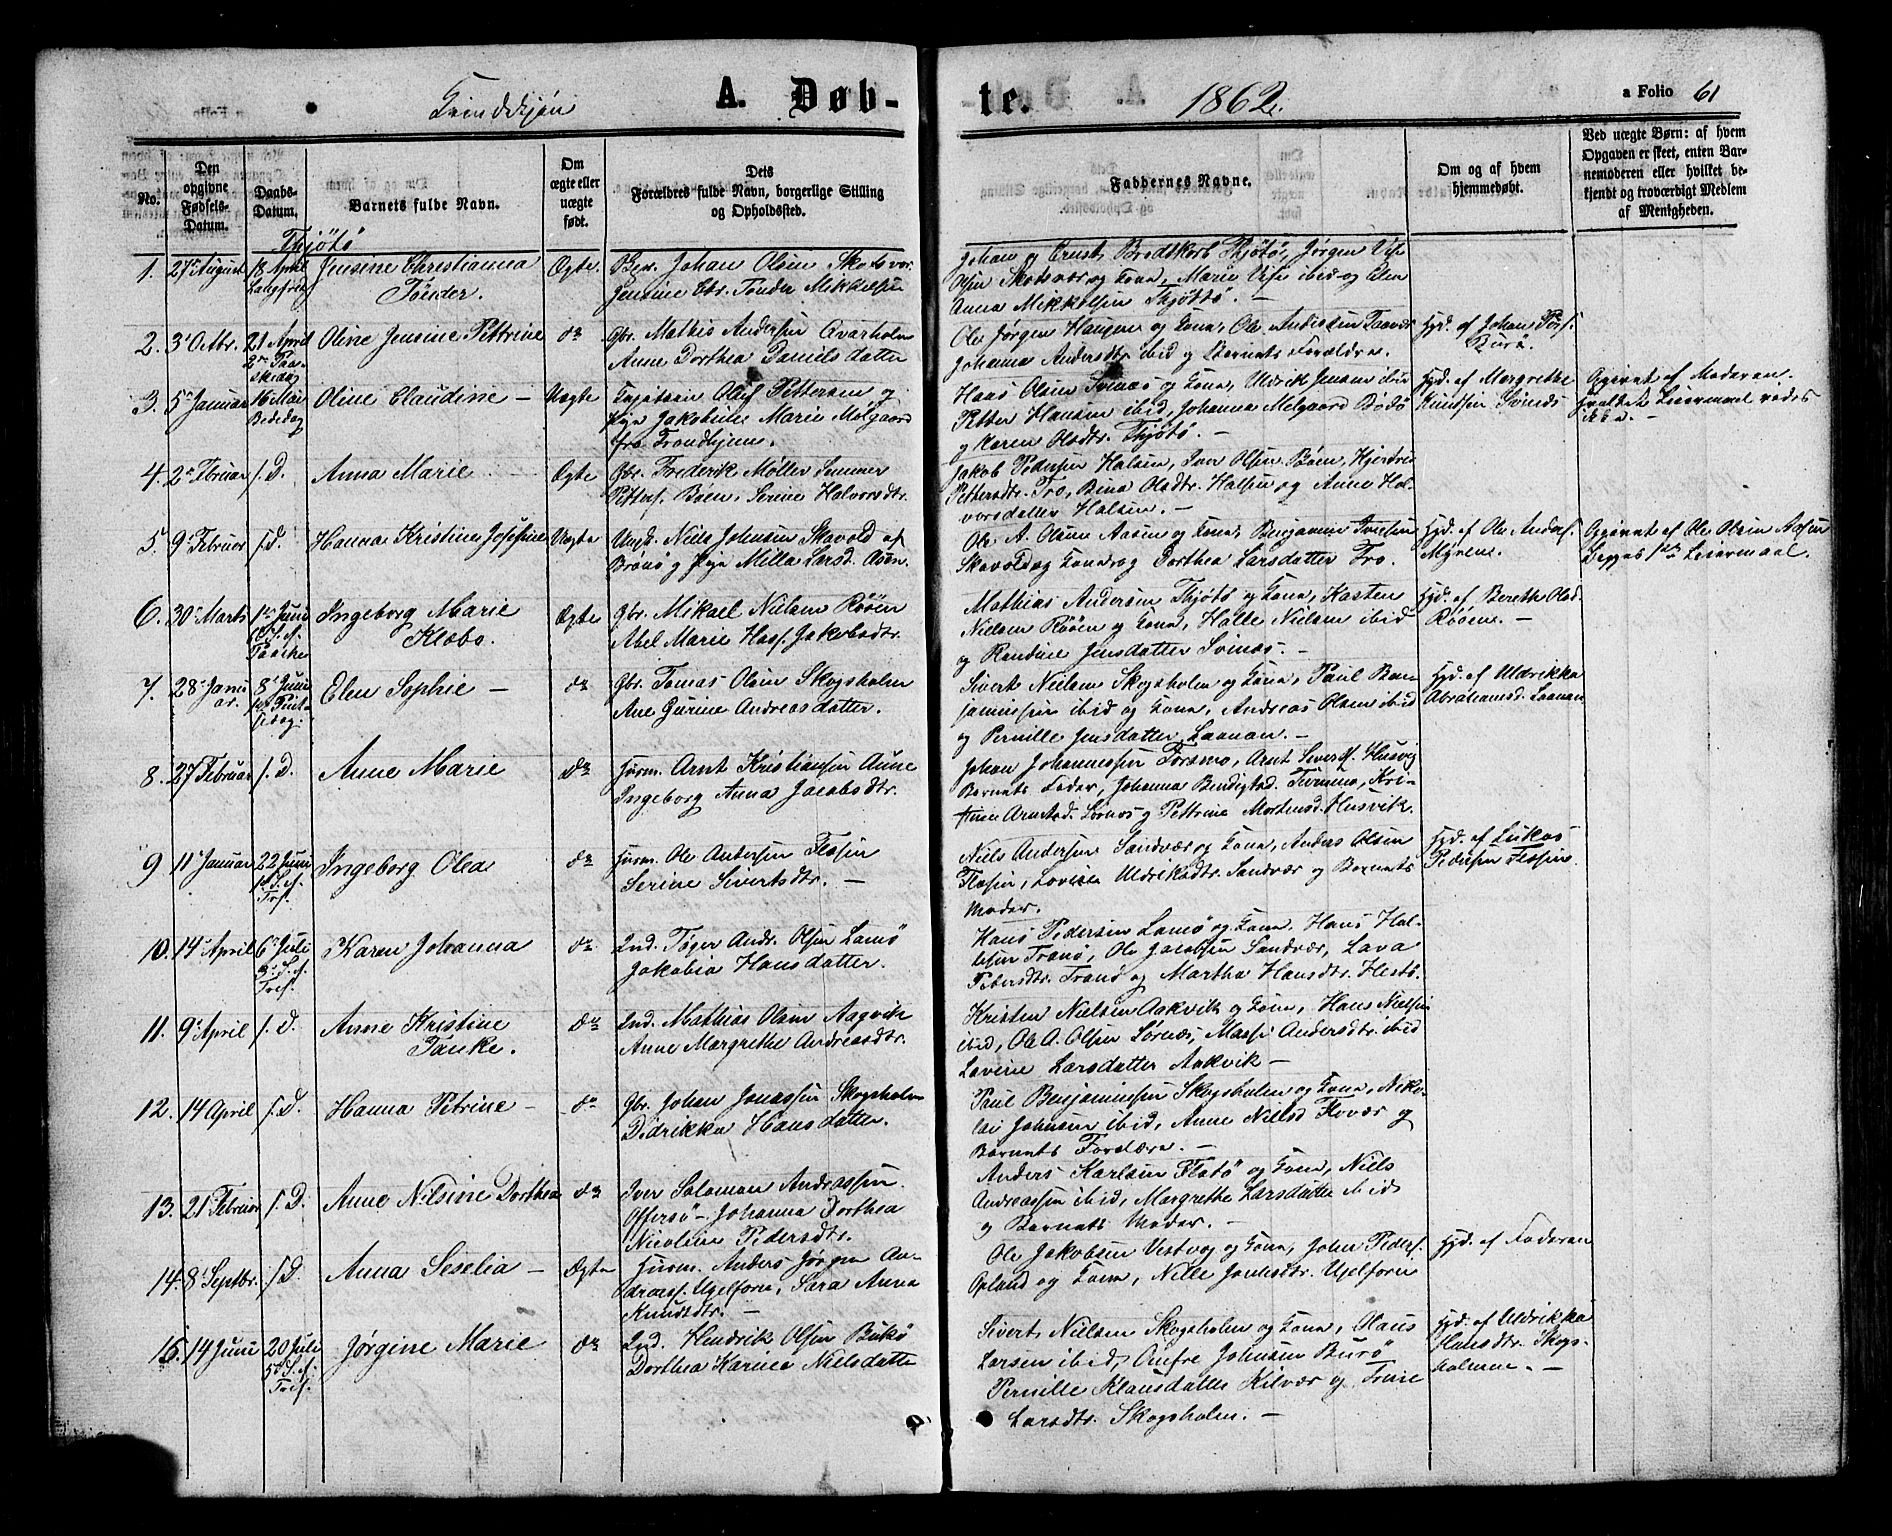 Kvindekjøn
A. Døb-
te.
1862.
a Folio 61
No.
Den
opgivne
Fødsels-
Datum.
Daabs-
Datum.
Barnets fulde Navn.
Om
ægte eller
uægte
født.
Dets
Forældres fulde Navn, borgerlige Stilling
og Opholdssted.
Faddernes Navne.
Om og af hvem
hjemmedøbt.
Ved uægte Børn: af hvem
Opgaven er skeet, enten Bar-
nemoderen eller hvilket be-
kjendt og troværdigt Medlem
af Menigheden.
Thjøtø
1. 27 August 18 April Jensine Christianna Ægte. Johan Olsen
Langfred Tønder. Jensine Tønder Mikkelsen
Johan og Ernst Brodtkorb Thjøtø, Jørgen
Olsen Skotsvær og Kona, Maren ibid og Elen
Anna Mikkelsen Thjøttø. —
2. 3 Octbr. 21 April Oline Jensine Pettrine do Gbr. Mathis Andersen Qvarholm
2n Paa-
skedag Anne Dorthea Daniels datter
Ole Jørgen Hansen og Kona, Ole Andersen
Johanna Andersdtr ibid og Barnets Forældre.
Hjd. af Johan
Burø.
3. 5 Januar 16 Mai Oline Claudine — Uægte Oluf Pettersen og
Bededag Pige Jakobine Marie Melgaard
fra Trondhjem.
Hans Olsen Svinæs og Kona, Uldrik Jensen ibid
Petter Hansen ibid, Johanna Melgaard Bodø
og Karen Olsdtr. Thjøtø. —
Hjd. af Margrethe
Knudsen Svinæs
Opgivet af Moderen.
Leiermaal vides
ikke. —
4. 2 Februar s. D. Anna Marie Ægte Gbr. Frederik Møller Sommer
Petters. Bøen, Serine Halvorsdtr.
Jakob Pedersen Halsen, Iver Olsen Bøen,
Pettersdtr. Tro, Bina Olsdtr. Halsen og Anne Hal-
vorsdatter Halsen. —
5. 9 Februar s. D. Hanna Kristine Josefine Uægte Ungk. Niels Johnsen Skavold af
Brønø og Pige Milla Larsd. Aasen
Ole A. Olsen Aasen og Kona, Benjamin Iversen
Skavold og Kona og Dorthea Larsdatter Tro.
Hjd. af Ole Anders.
Myrene.
Opgivet af Ole Olsen Aasen
Leiermaal.
6. 30 Marts 1ste Juni Ingeborg Marie Ægte Gbr. Mikael Nielsen Røøen
Paaske Klæbo. Abel Marie Jakobsdtr.
Mathias Andersen Thjøtø og Kona, Karsten
Nielsen Røøen og Kona, Halle Nielsen ibid
og Randine Jensdatter Svinæs. —
Hjd. af Berethe Olsd.
Røøene. —
7. 28 Janu- 8 Juni Elen Sophie — do Gbr. Tomas Olsen Skogsholm
ar. Ane Gurine Andreasdatter.
Sivert Nielsen Skogsholm og Kona, Paul Ben-
jaminsen ibid og Kona, Andreas Olsen ibid
og Pernille Jensdatter Laanan. —
Hjd. af Uldrikka
Abrahamsd. Laanan
8. 27 Februar s. D. Anne Marie do Huusm. Arnt Kristiansen Aune
Ingeborg Anna Jacobsdtr.
Johan Johannessen Forsmo, Arnt Husvig
Barnets Fader, Johanna Kri-
stine Arntsd. Sørnæs og Pettrine Mortensd. Husvik.
9 11 Januar 22 Juni Ingeborg Olea do Huusm. Ole Andersen Flosen
1 S. e.
Tref. Serine Sivertsdtr. —
Niels Andersen Sandvær og Kona, Anders Olsen
Flosen, Lovise Uldriksdtr. Sandvær og Barnets
Moder.
Hjd. af Lukas
Pedersen Flosen.
10. 14 April 6 Juli Karen Johanna do Ind. Tøger Andr. Olsen Lamø
3 S. e.
Tref. Jakobia Hansdatter.
Hans Pedersen Lamø og Kona, Hans Hal-
sen Tranø, Ole Jacobsen Sandvær, Lava
Pedersdtr. Tranø og Martha Hansdtr. Hestø.
11. 9 April s. D. Anne Kristine do Ind. Mathias Olsen Aagvik
Tanke. Anne Margrethe Andreasdtr.
Kristen Nielsen Aakvik og Kona, Hans Nielsen
ibid, Ole A. Olsen Sørnæs, Massi Andersdtr. ibid
Lavine Larsdatter Aakvik —
12. 14 April s. D. Hanna Petrine — do Gbr. Johan Jonassen Skogsholm
Didrikka Hans datter.
Paul Benjaminsen Skogsholm og Kona, Niko-
lai Johnsen ibid, Anne Nielsd Flovær og
Barnets Forældre.
13. 21 Februar s. D. Anne Nilsine Dorthea do Iver Salamon Andreassen
Offersø — Johanna Dorthea
Nicoline Pedersdtr.
Anders Karlsen Flatø og Kona, Niels
Andreassen ibid, Margrethe Larsdatter ibid
og Barnets Moder. —
14. 8 Septbr. s. D. Anna Seselia — Ægte Huusm. Anders Jørgen An-
dreass. Ugelforn, Sara Anna
Knudsdtr. —
Ole Jakobsen Vestvog og Kona, John Peders.
Opland og Kona, Nille Ugelforn
Hjd. af Faderen
15. 14 Juni 20 Juli Jørgine Marie do Ind. Hendrik Olsen Burø
5 S. e.
Tref. Dorthea Karine Nielsdatter
Sivert Nielsen Skogsholm og Kona, Olaus
Larsen ibid, Johnsen Burø
Pernille Klausdatter Kilvær og Trine
Larsdtr. Skogsholm. —
Hjd. af Uldrikka
Hansdtr. Skogs-
holmen. —